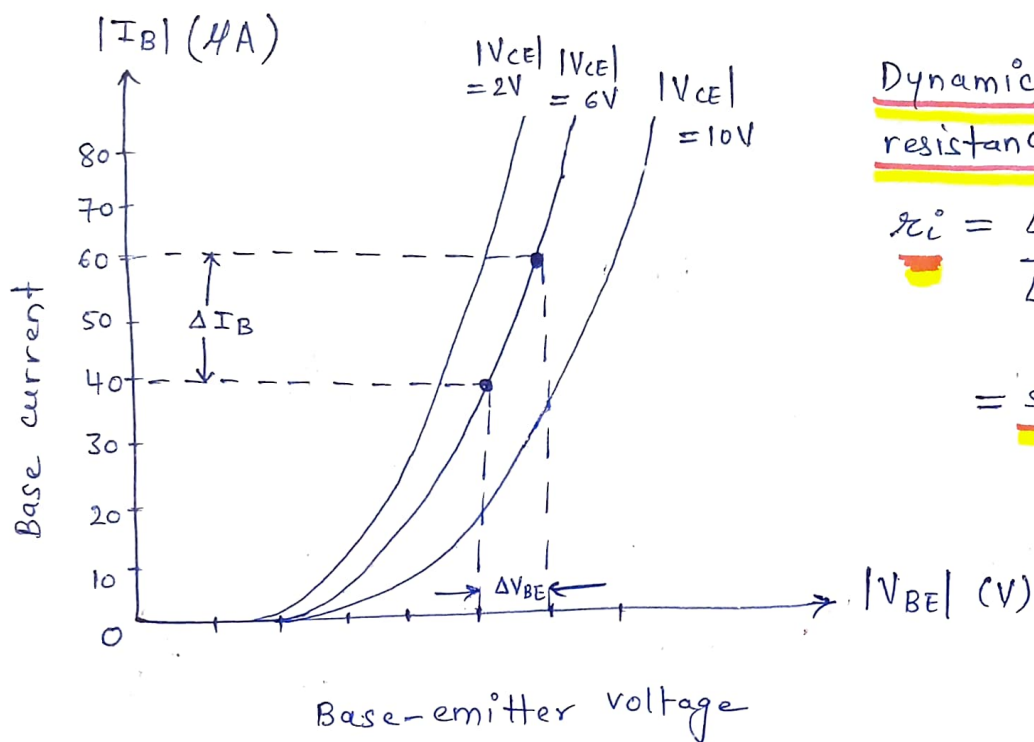 |IB| (μA)
|VCE| = 2V
|VCE| = 6V
|VCE| = 10V
80
70
60
50
40
30
20
10
0
ΔIB
ΔVBE
Base current
|VBE| (V)
Base-emitter voltage
Dynamic
ri =
=